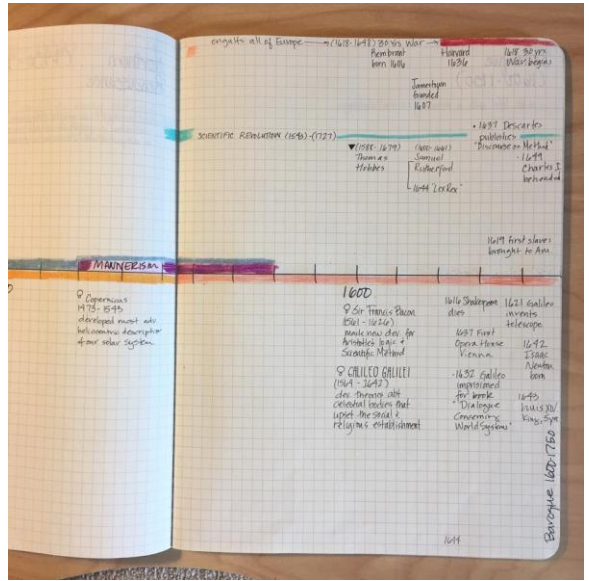 engulfs all of Europe → (1618-1648) 30 yrs War →
Rembrant
born 1606
Harvard
1636
1618 30 yrs
War begins
Jamestown
founded
1607
SCIENTIFIC REVOLUTION (1543)-(1727)
• 1637 Descartes
publishes
"Discourse on Method"
▼(1588-1679)
Thomas
Hobbes
(1600-1661)
Samuel
Rutherford
1644 "Lex Rex"
- 1649
Charles I
beheaded
1619 first slaves
brought to Am.
MANNERISM
1600
Copernicus
1473-1543
developed most adv.
heliocentric descriptio
of our solar system
Sir Francis Bacon
(1561-1626)
made new dev. for
Aristotle's logic +
Scientific Method
GALILEO GALILEI
(1564-1642)
dev. theories abt
celestial bodies that
upset the social &
religious establishment
1616 Shakespeare
dies
1637 First
Opera House
Vienna
-1632 Galileo
imprisoned
for book
"Dialogue
Concerning
World Systems"
1621 Galileo
invents
telescope
1642
Isaac
Newton
born
1643
Louis XIV
King,
Baroque 1600-1750
1644